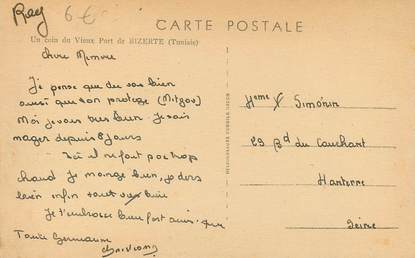 Ray 6€
CARTE POSTALE
Un coin du Vieux Port de BIZERTE (Tunisie)
Chère Mémère
Je pense que du vas bien
aussi que ton protégé
Moi je vais très bien. Je sais
nager depuis 8 jours
Ici il ne fait pas trop
chaud Je mange bien, je dors
bien enfin tout va bien
Je t'embrasse bien fort ainsi que
Tante Germaine
Mme Simonin
29 Bd du Couchant
Nanterre
Seine